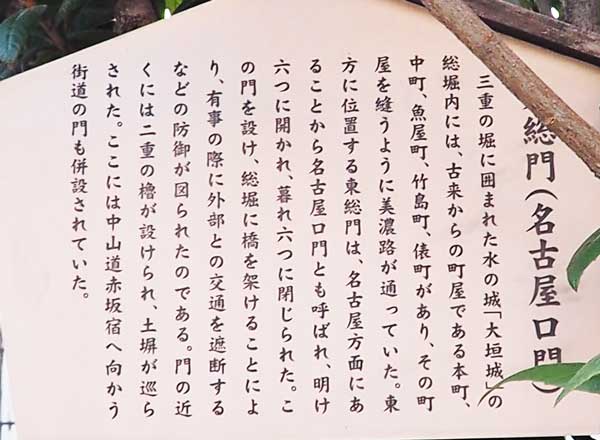 総門(名古屋口門)
三重の堀に囲まれた水の城「大垣城」の
総堀内には、古来からの町屋である本町、
中町、魚屋町、竹島町、俵町があり、その町
屋を縫うように美濃路が通っていた。東
方に位置する東総門は、名古屋方面にあ
ることから名古屋口門とも呼ばれ、明け
六つに開かれ、暮れ六つに閉じられた。こ
の門を設け、総堀に橋を架けることによ
り、有事の際に外部との交通を遮断する
などの防御が図られたのである。門の近
くには二重の櫓が設けられ、土塀が巡ら
された。ここには中山道赤坂宿へ向かう
街道の門も併設されていた。